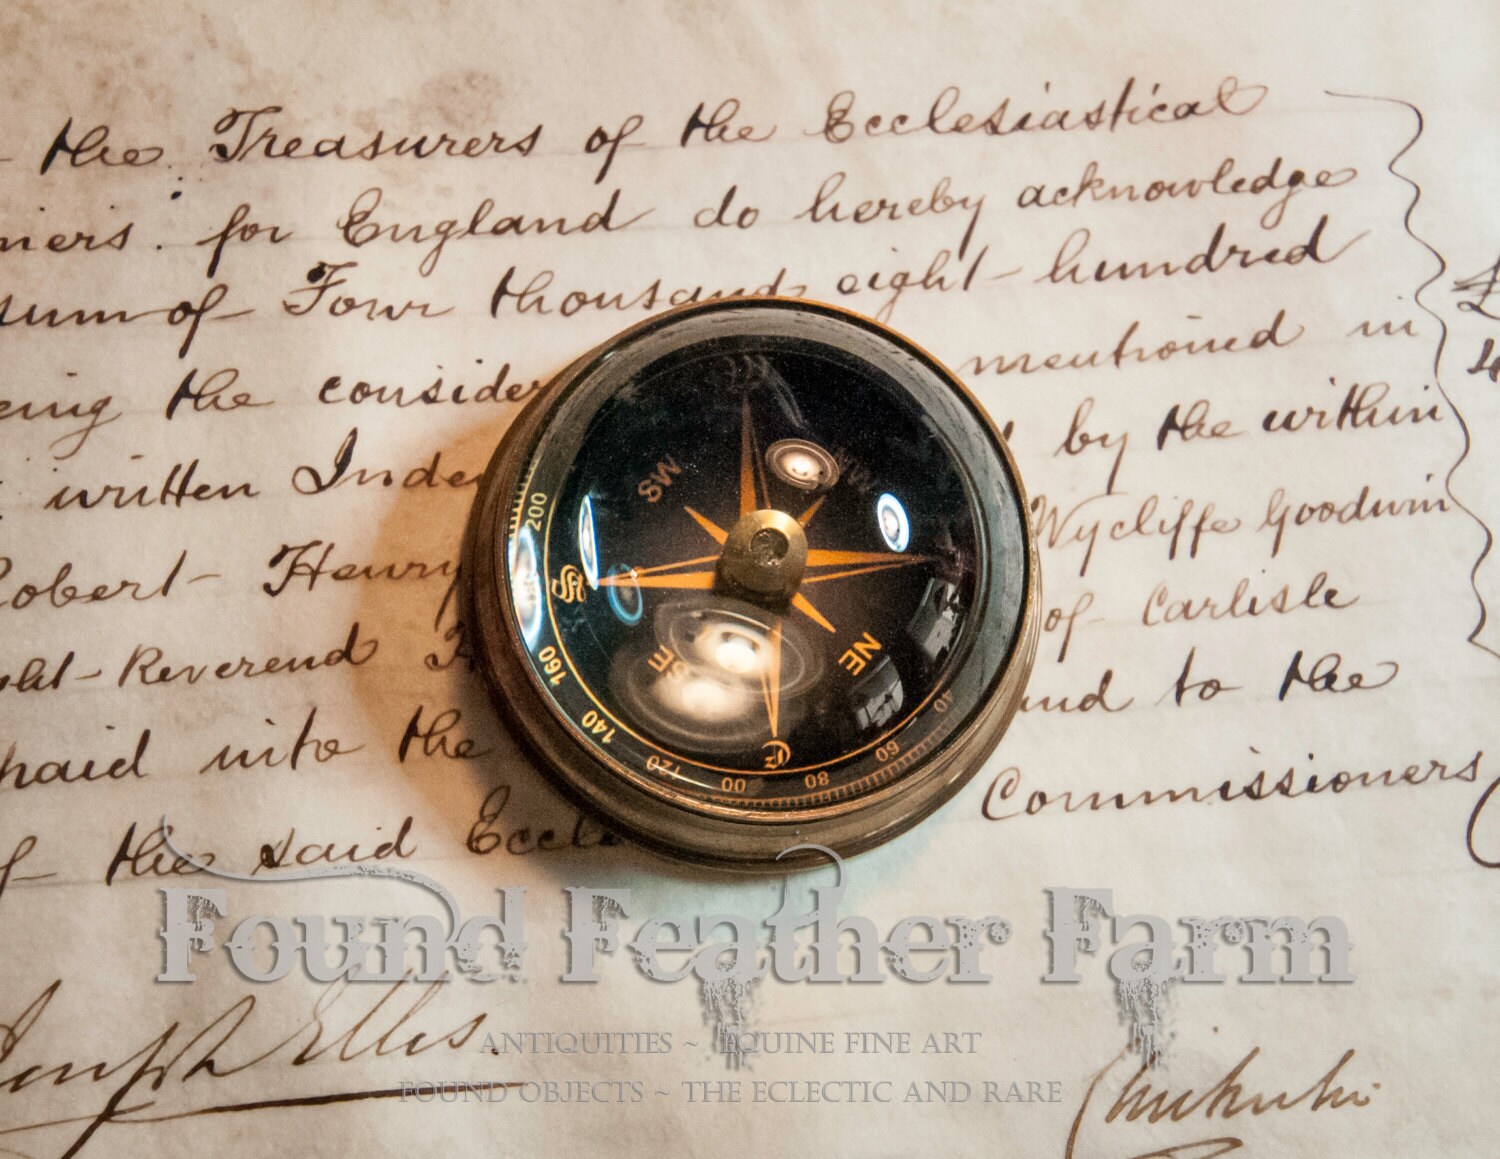 the Treasurers of the Ecclesiastical
ners for England do hereby acknowledge
sum of Four thousand eight hundred
£
eing the consider mentioned in
4
written Inde by the within
Robert Henry Wycliffe Goodwin
ght Reverend of Carlisle
paid into the and to the
of the said Eccle Commissioners
SW
NE
SE
S
E
200
160
140
120
00
80
60
40
Found Feather Farm
Joseph Ellis.
ANTIQUITIES ~ EQUINE FINE ART
FOUND OBJECTS ~ THE ECLECTIC AND RARE